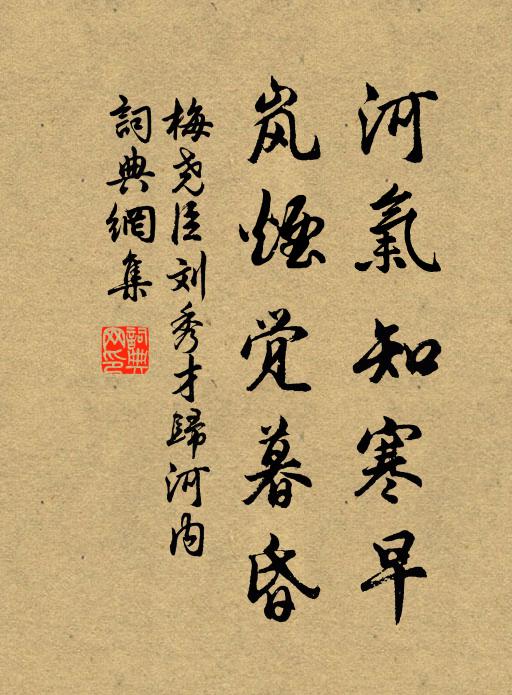 河氣知寒早
岚煙觉暮昏
梅尧臣刘秀才歸河内
詞典網集
詞典网印